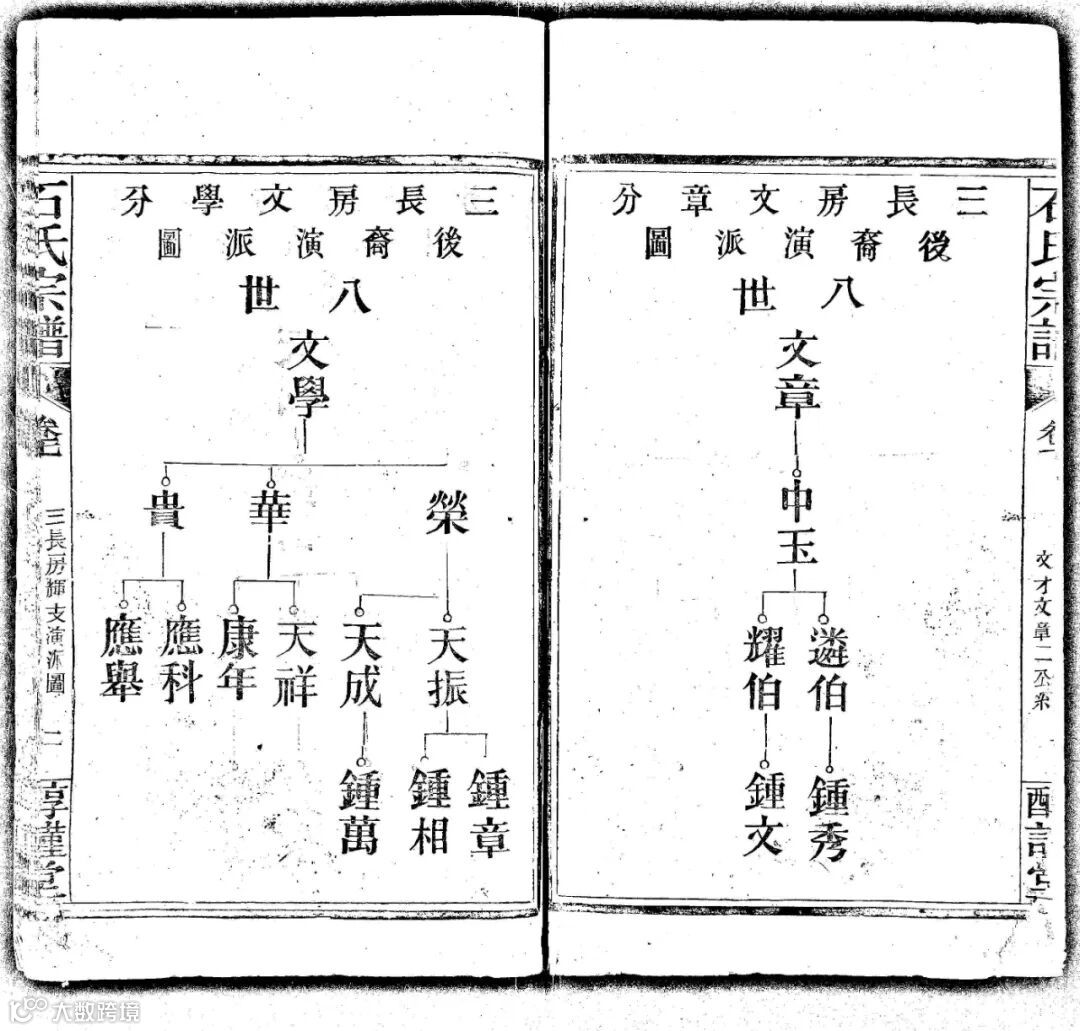 三長房文章分
後裔演派圖
八世
文章
中玉
遴伯
耀伯
鍾秀
鍾文
文才文章二公系
三長房文學分
後裔演派圖
八世
文學
榮
華
貴
天振
天成
天祥
康年
應科
應舉
鍾章
鍾相
鍾萬
石氏宗譜
三長房輝支演派圖
二
大数跨境